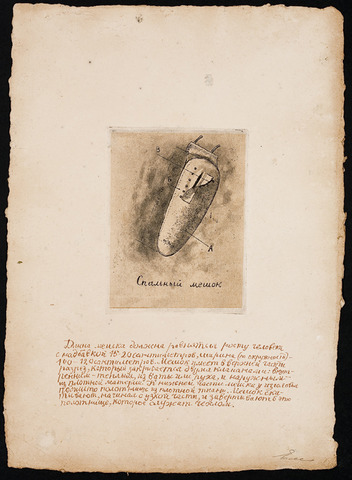 Спальный мешок
Длина мешка должна равняться росту человека
с надбавкой 15-20 сантиметров, ширина (по окружности)-
190- сантиметров. Мешок имеет в верхней части
разрез, который закрывается двумя клапанами: внут-
ренним - теплым, из ваты или пуха, и наружным -
из плотной материи. К нижней части мешка у изголовья
пришито полотнище из плотной ткани. Мешок ска-
тывают, начиная с узкой части, и завертывают в это
полотнище, которое служит чехлом.